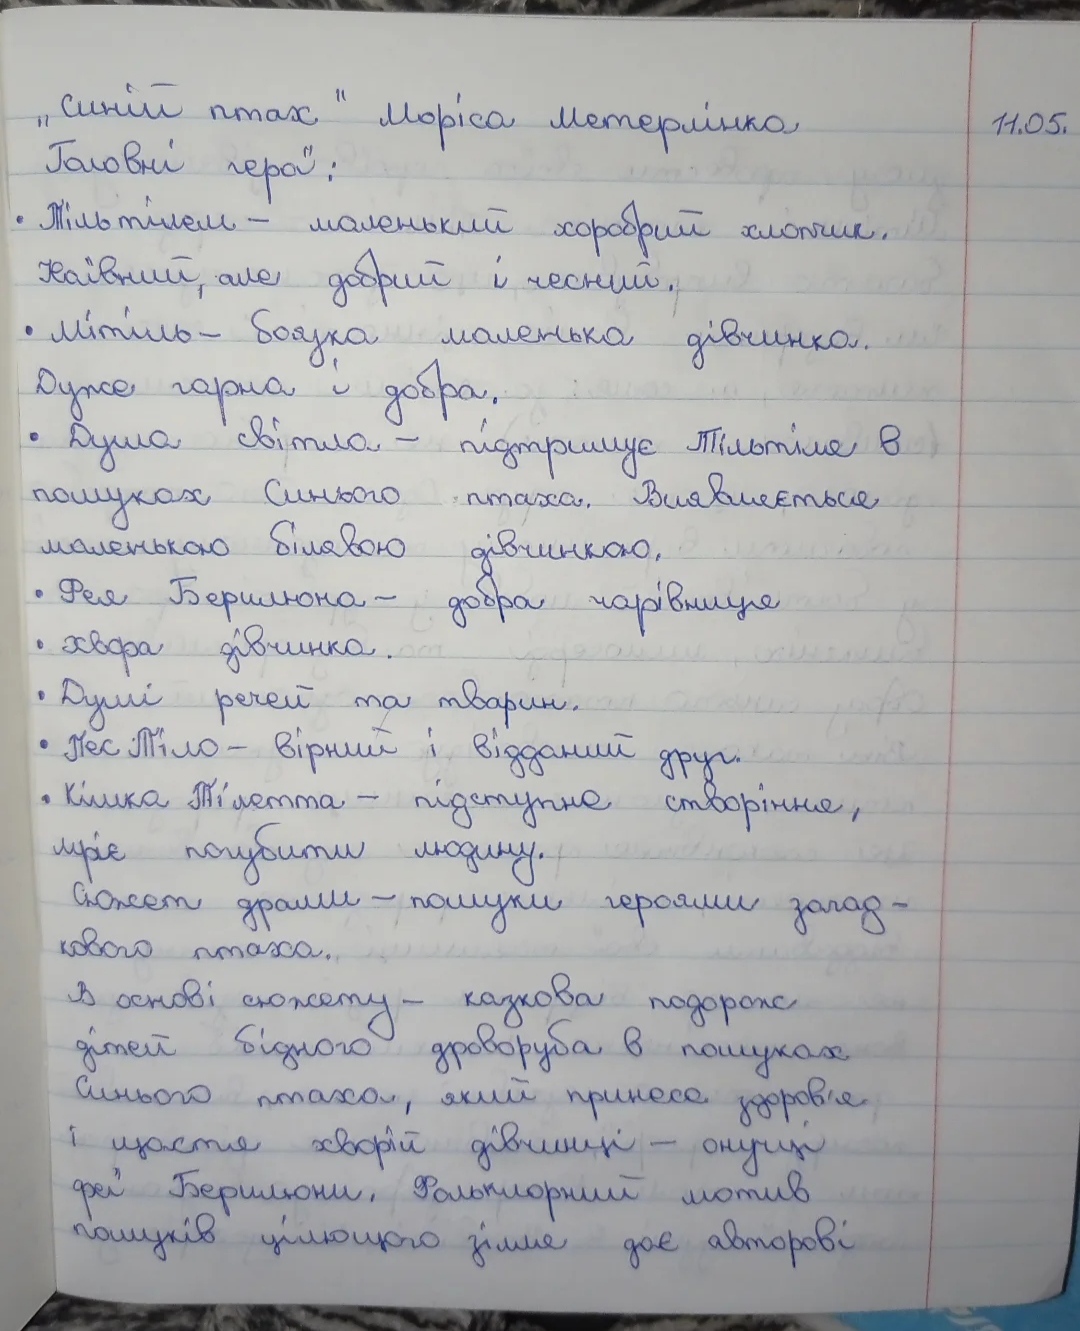 „Синій птах" Моріса Метерлінка
11.05.
Головні герої:
• Тільтілем – маленький хоробрий хлопчик.
Наївний, але добрий і чесний.
• Мітіль – боязка маленька дівчинка.
Дуже гарна і добра.
• Душа світла – підтримує Тільтіля в
пошуках Синього птаха. Виявляється
маленькою білявою дівчинкою.
• Фея Берилюна – добра чарівниця
• хвора дівчинка.
• Душі речей та тварин.
• Пес Тіло – вірний і відданий друг.
• Кішка Тілетта – підступне створіння,
мріє погубити людину.
Сюжет драми – пошуки героями загад-
кового птаха.
В основі сюжету – казкова подорож
дітей бідного дроворуба в пошуках
Синього птаха, який принесе здоров'я
і щастя хворій дівчинці – онуці
феї Берилюни. Фольклорний мотив
пошуків цілющого зілля дає авторові